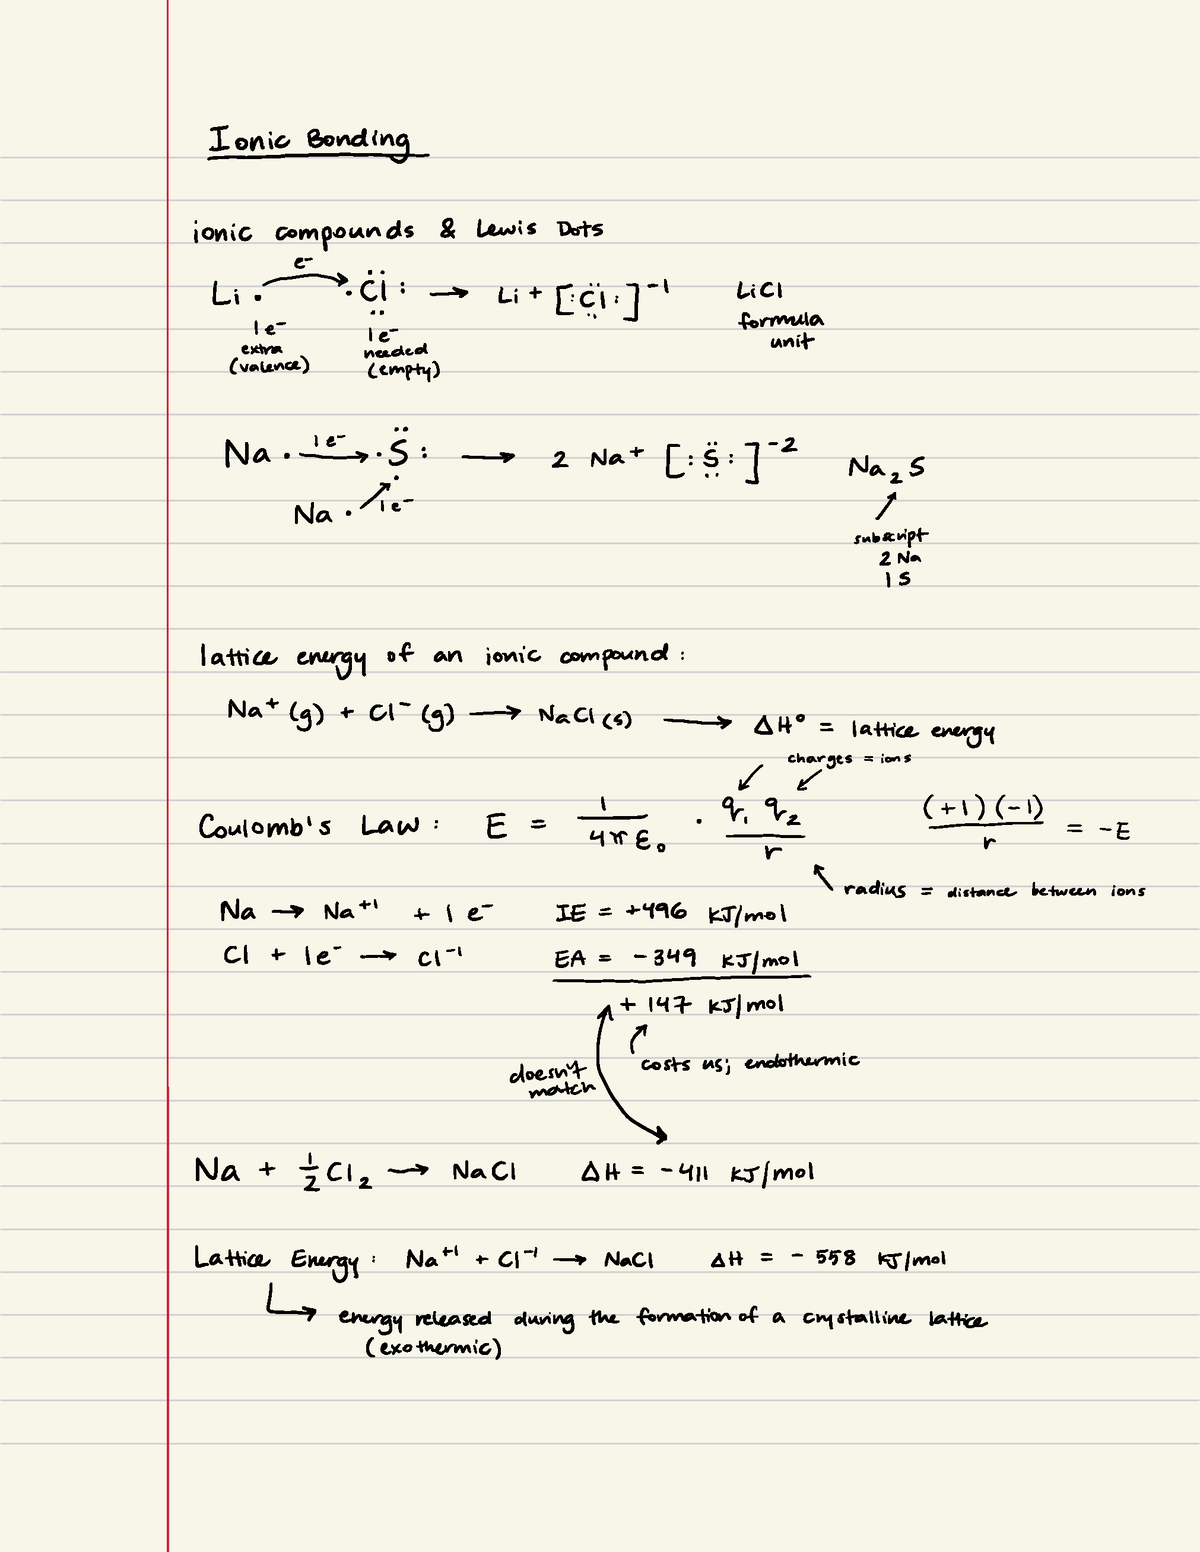 Ionic Bonding
ionic compounds & Lewis Dots
e⁻
Li · ·C̈l: → Li + [:C̈l:]⁻¹ LiCl
1e⁻ 1e⁻ formula
extra needed unit
(valence) (empty)
Na · 1e⁻ → ·S̈: → 2 Na⁺ [:S̈:]⁻² Na₂S
Na · 1e⁻
subscript
2 Na
1 S
lattice energy of an ionic compound:
Na⁺(g) + Cl⁻(g) → NaCl(s) → ΔH° = lattice energy
charges = ions
Coulomb's Law: E = 1/4πε₀ · q₁ q₂/r (+1)(-1)/r = -E
radius = distance between ions
Na → Na⁺¹ + 1e⁻ IE = +496 kJ/mol
Cl + 1e⁻ → Cl⁻¹ EA = -349 kJ/mol
+ 147 kJ/mol
costs us; endothermic
doesn't
match
Na + ½Cl₂ → NaCl ΔH = -411 kJ/mol
Lattice Energy: Na⁺¹ + Cl⁻¹ → NaCl ΔH = - 558 kJ/mol
energy released during the formation of a crystalline lattice
(exothermic)